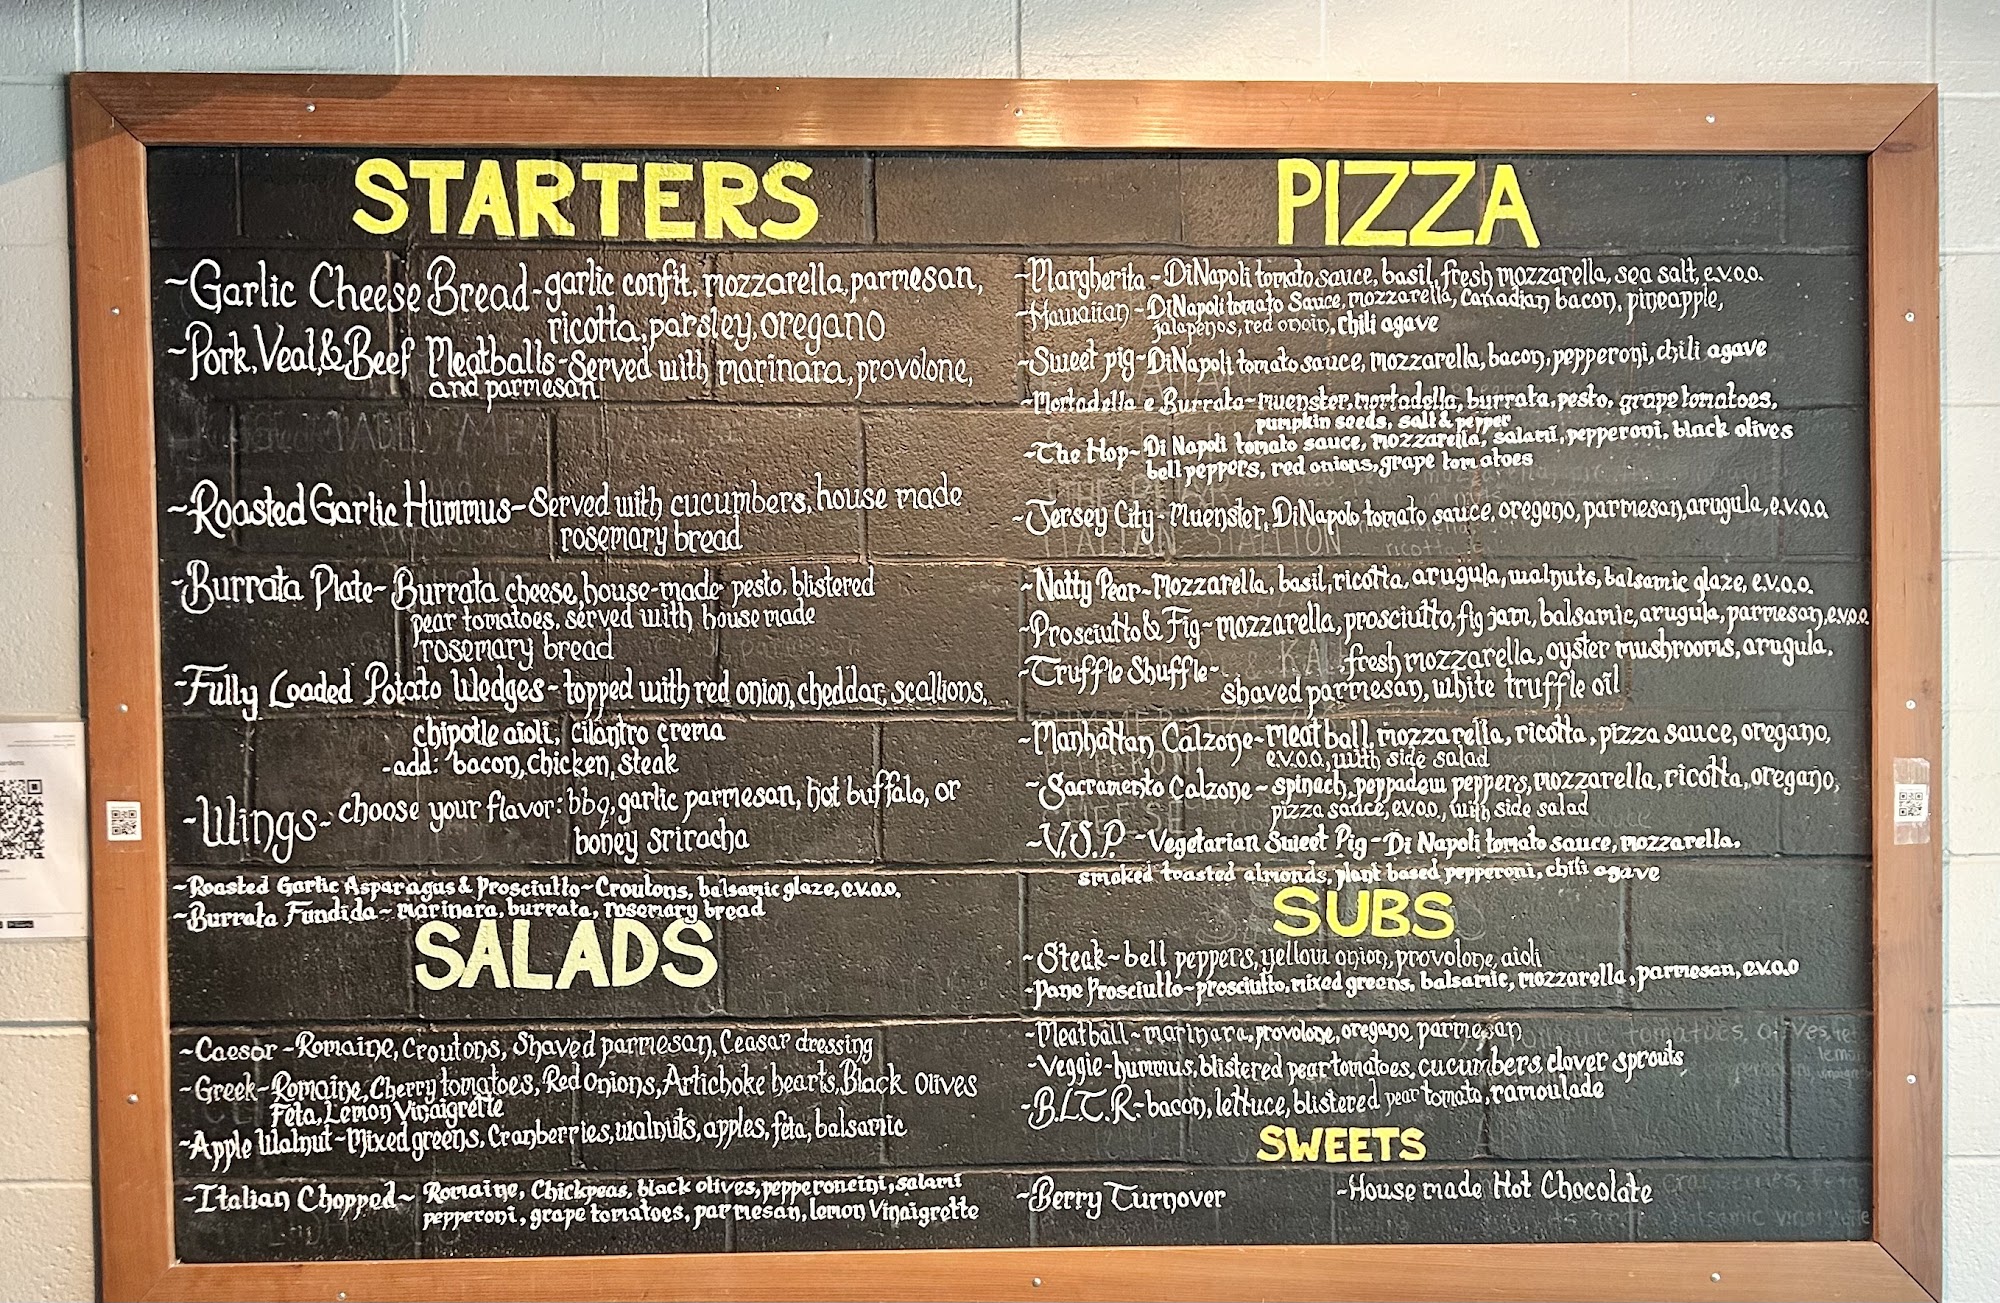 STARTERS
~Garlic Cheese Bread-garlic confit, mozzarella, parmesan,
ricotta, parsley, oregano
~Pork, Veal, & Beef Meatballs-Served with marinara, provolone,
and parmesan
~Roasted Garlic Hummus-Served with cucumbers, house made
rosemary bread
~Burrata Plate-Burrata cheese, house-made pesto, blistered
pear tomatoes, served with house made
rosemary bread
~Fully Loaded Potato Wedges-topped with red onion, cheddar, scallions,
chipotle aioli, cilantro crema
-add: bacon, chicken, steak
~Wings-choose your flavor: bbq, garlic parmesan, hot buffalo, or
boney sriracha
~Roasted Garlic Asparagus & Prosciutto-Croutons, balsamic glaze, e.v.o.o.
~Burrata Fundida-marinara, burrata, rosemary bread
SALADS
~Caesar-Romaine, Croutons, Shaved parmesan, Ceasar dressing
~Greek-Romaine, Cherry tomatoes, Red onions, Artichoke hearts, Black Olives
Feta, Lemon Vinaigrette
~Apple Walnut-Mixed greens, Cranberries, walnuts, apples, feta, balsamic
~Italian Chopped~Romaine, Chickpeas, black olives, pepperoncini, salami
pepperoni, grape tomatoes, parmesan, lemon Vinaigrette
PIZZA
~Margherita-DiNapoli tomato sauce, basil, fresh mozzarella, sea salt, e.v.o.o.
~Hawaiian-DiNapoli tomato Sauce, mozzarella, Canadian bacon, pineapple,
jalapenos, red onoin, chili agave
~Sweet pig-DiNapoli tomato sauce, mozzarella, bacon, pepperoni, chili agave
~Mortadella e Burrata-muenster, mortadella, burrata, pesto, grape tomatoes,
pumpkin seeds, salt & pepper
~The Hop-Di Napoli tomato sauce, mozzarella, salami, pepperoni, black olives
bell peppers, red onions, grape tomatoes
~Jersey City-Muenster, DiNapolo tomato sauce, oregeno, parmesan, arugula, e.v.o.o.
~Natty Pear-mozzarella, basil, ricotta, arugula, walnuts, balsamic glaze, e.v.o.o.
~Prosciutto & Fig-mozzarella, prosciutto, fig jam, balsamic, arugula, parmesan, e.v.o.o.
~Truffle Shuffle- fresh mozzarella, oyster mushrooms, arugula,
shaved parmesan, white truffle oil
~Manhattan Calzone-meat ball, mozzarella, ricotta, pizza sauce, oregano,
e.v.o.o., with side salad
~Sacramento Calzone-spinach, peppadew peppers, mozzarella, ricotta, oregano,
pizza sauce, e.v.o.o., with side salad
~V.S.P-Vegetarian Sweet Pig-Di Napoli tomato sauce, mozzarella.
smoked toasted almonds, plant based pepperoni, chili agave
SUBS
~Steak-bell peppers, yellow onion, provolone, aioli
~Pane Prosciutto-prosciutto, mixed greens, balsamic, mozzarella, parmesan, e.v.o.o
~Meatball-marinara, provolone, oregano, parmesan
~Veggie-hummus, blistered pear tomatoes, cucumbers, clover sprouts,
~B.L.T.R.-bacon, lettuce, blistered pear tomato, ramoulade
SWEETS
~Berry Turnover
~House made Hot Chocolate